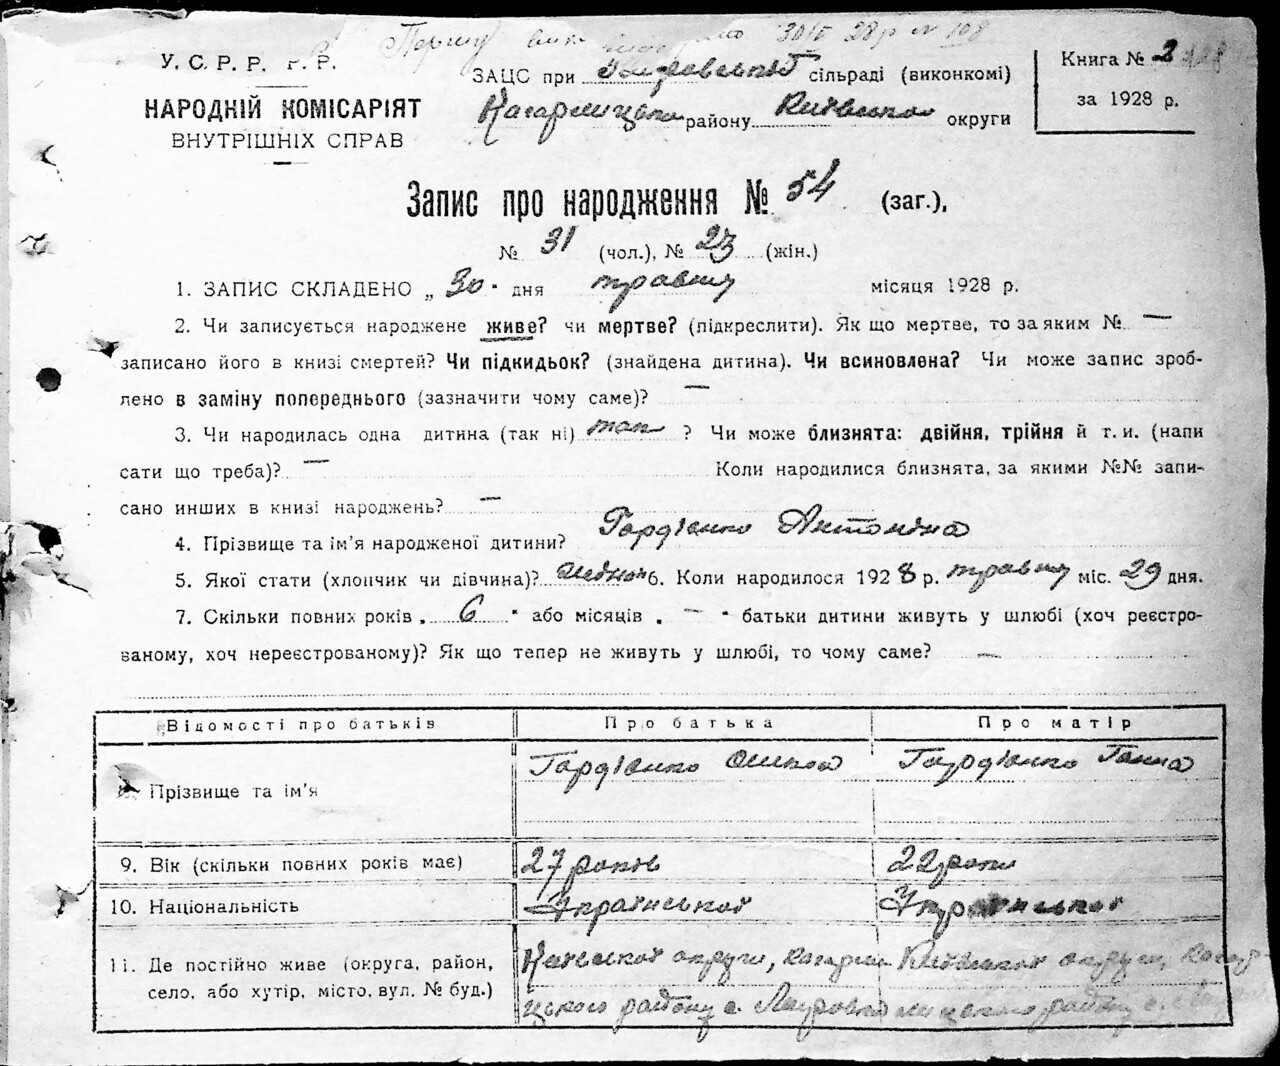 Першу 30/V 28 р № 108
У. С. Р. Р. Р. Р.
НАРОДНІЙ КОМІСАРІЯТ
ВНУТРІШНІХ СПРАВ
ЗАЦС при сільраді (виконкомі)
Кагарлицьк. району Київської округи
Книга № 2
за 1928 р.
Запис про народження № 54 (заг.),
№ 31 (чол.), № 23 (жін.)
1. ЗАПИС СКЛАДЕНО „ 30 " дня травня місяця 1928 р.
2. Чи записується народжене живе? чи мертве? (підкреслити). Як що мертве, то за яким № —
записано його в книзі смертей? Чи підкидьок? (знайдена дитина). Чи всиновлена? Чи може запис зроб-
лено в заміну попереднього (зазначити чому саме)? —
3. Чи народилась одна дитина (так ні) так ? Чи може близнята: двійня, трійня й т. и. (напи
сати що треба)? — Коли народилися близнята, за якими №№ запи-
сано инших в книзі народжень? —
4. Прізвище та ім'я народженої дитини? Гордієнко Антоніна
5. Якої стати (хлопчик чи дівчина)? 6. Коли народилося 1928 р. травня міс. 29 дня.
7. Скільки повних років „ 6 " або місяців „ — " батьки дитини живуть у шлюбі (хоч реєстро-
ваному, хоч нереєстрованому)? Як що тепер не живуть у шлюбі, то чому саме? —
Відомості про батьків Про батька Про матір
8. Прізвище та ім'я Гордієнко Гордієнко Ганна
9. Вік (скільки повних років має) 27 років 22 роки
10. Національність Української Української
11. Де постійно живе (округа, район, Київської округи, Кагарли Київської округи, Кагар-
село, або хутір, місто, вул. № буд.) цького району с. лицького району с.